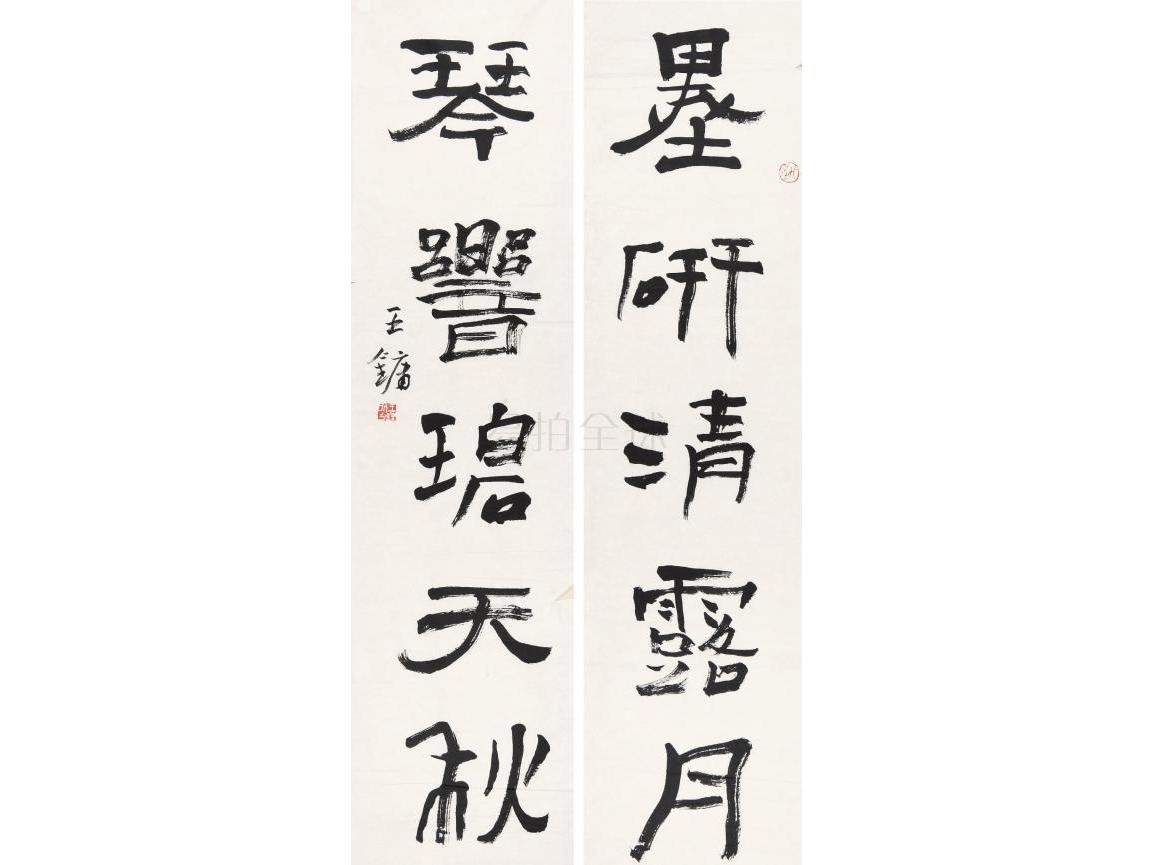 墨研清露月
琴響碧天秋
王鏞
拍全球